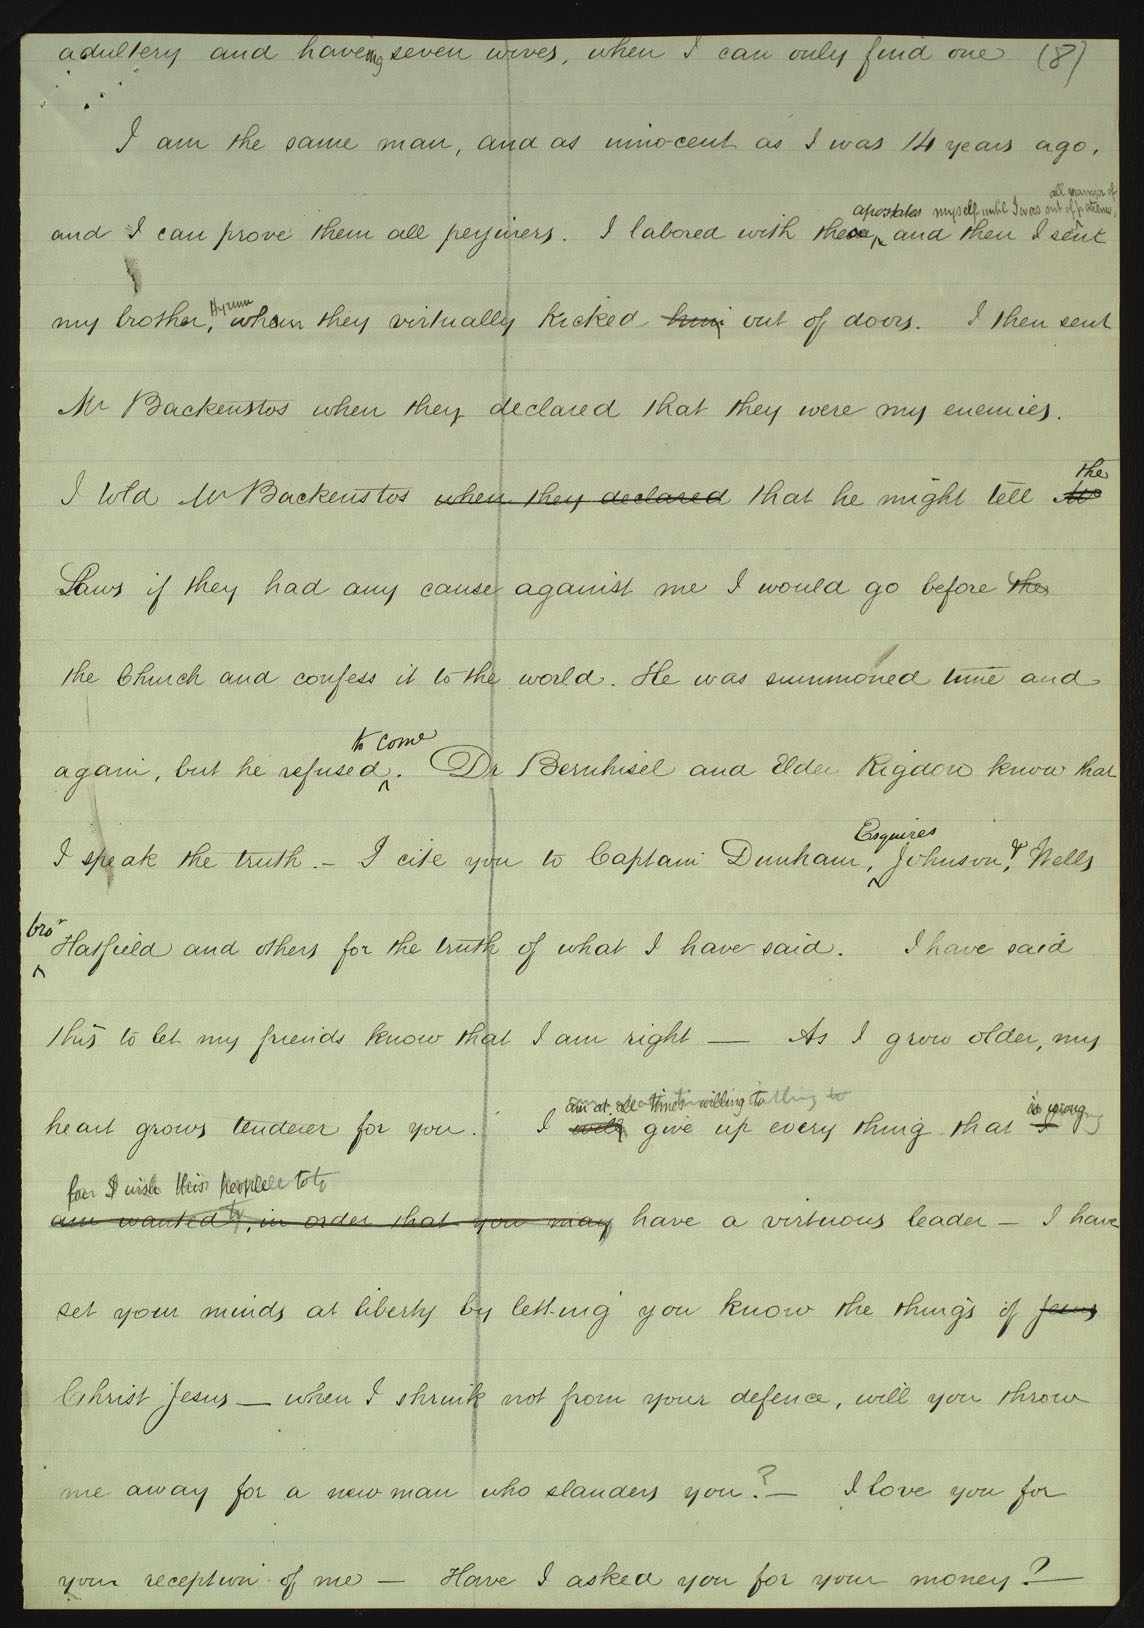 adultery and haveing seven wives, when I can only find one (8)
I am the same man, and as innocent as I was 14 years ago,
apostates myself until I was out of all manner of patience,
and I can prove them all perjurers. I labored with these ‸ and then I sent
Hyrum
my brother, whom they virtually kicked him out of doors. I then sent
Mr Backenstos when they declared that they were my enemies.
the
I told Mr Backenstos when they declared that he might tell
Laws if they had any cause against me I would go before the
the Church and confess it to the world. He was summoned time and
to come
again, but he refused ‸. Dr Bernhisel and Elder Rigdon know that
Esquires
I speak the truth. - I cite you to Captain Dunham, ‸ Johnson, & Wells
bro
‸ Hatfield and others for the truth of what I have said. I have said
this to let my friends know that I am right — As I grow older, my
am at all times willing to is wrong
heart grows tenderer for you. I will give up every thing that I
for I wish this people to
am wanted to, in order that you may have a virtuous leader — I have
set your minds at liberty by letting you know the things of Jesus
Christ Jesus — when I shrink not from your defence, will you throw
me away for a new man who slanders you? — I love you for
your reception of me — Have I asked you for your money? —